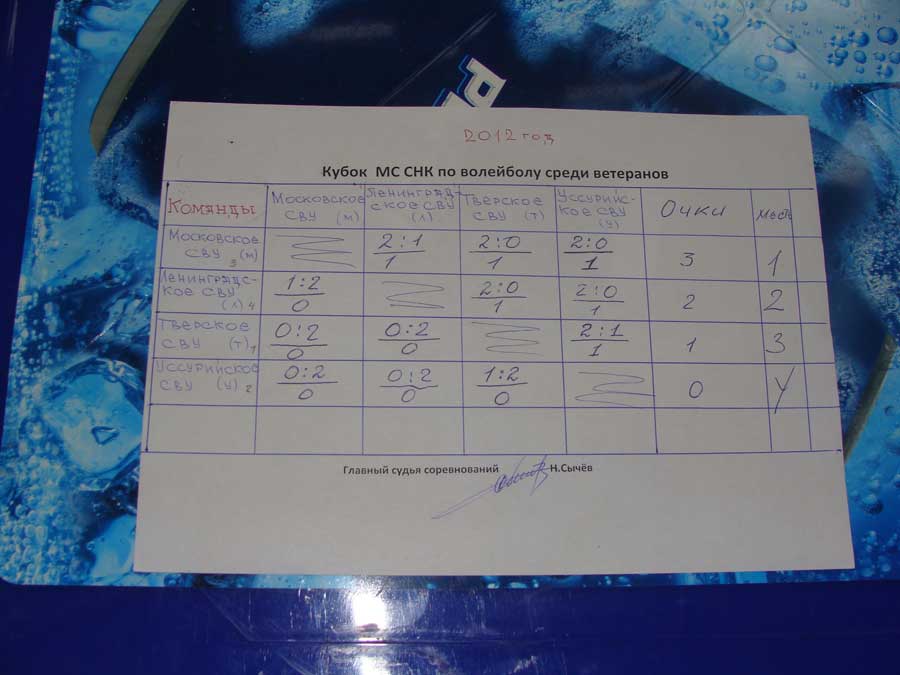 2012 год
Кубок МС СНК по волейболу среди ветеранов
Команды Московское СВУ (м) Ленинград-ское СВУ (л) Тверское СВУ (т) Уссурийс-кое СВУ (у) Очки Место
Московское СВУ 3 (м) 2:1 1 2:0 1 2:0 1 3 1
Ленинградс-кое СВУ (л) 4 1:2 0 2:0 1 2:0 1 2 2
Тверское СВУ (т) 1 0:2 0 0:2 0 2:1 1 1 3
Уссурийское СВУ (у) 2 0:2 0 0:2 0 1:2 0 0 4
Главный судья соревнований Н.Сычёв